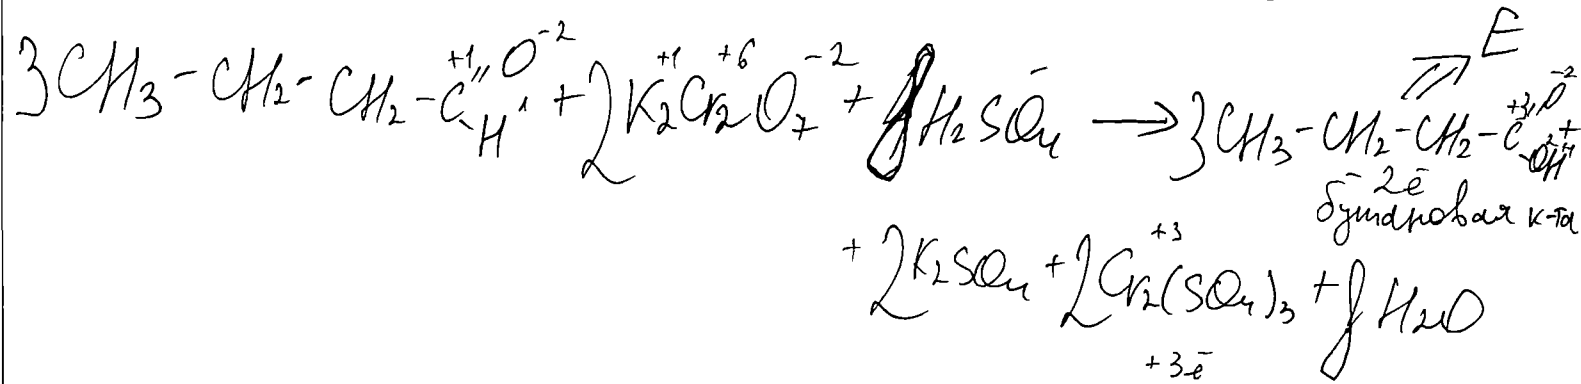 E
3CH₃-CH₂-CH₂-C⁺¹=O⁻²-H⁺¹ + 2K₂⁺¹Cr₂⁺⁶O₇⁻² + 8H₂SO₄ → 3CH₃-CH₂-CH₂-C⁺³=O⁻²-OH
-2ē
бутановая к-та
+ 2K₂SO₄ + 2Cr₂⁺³(SO₄)₃ + 8H₂O
+3ē